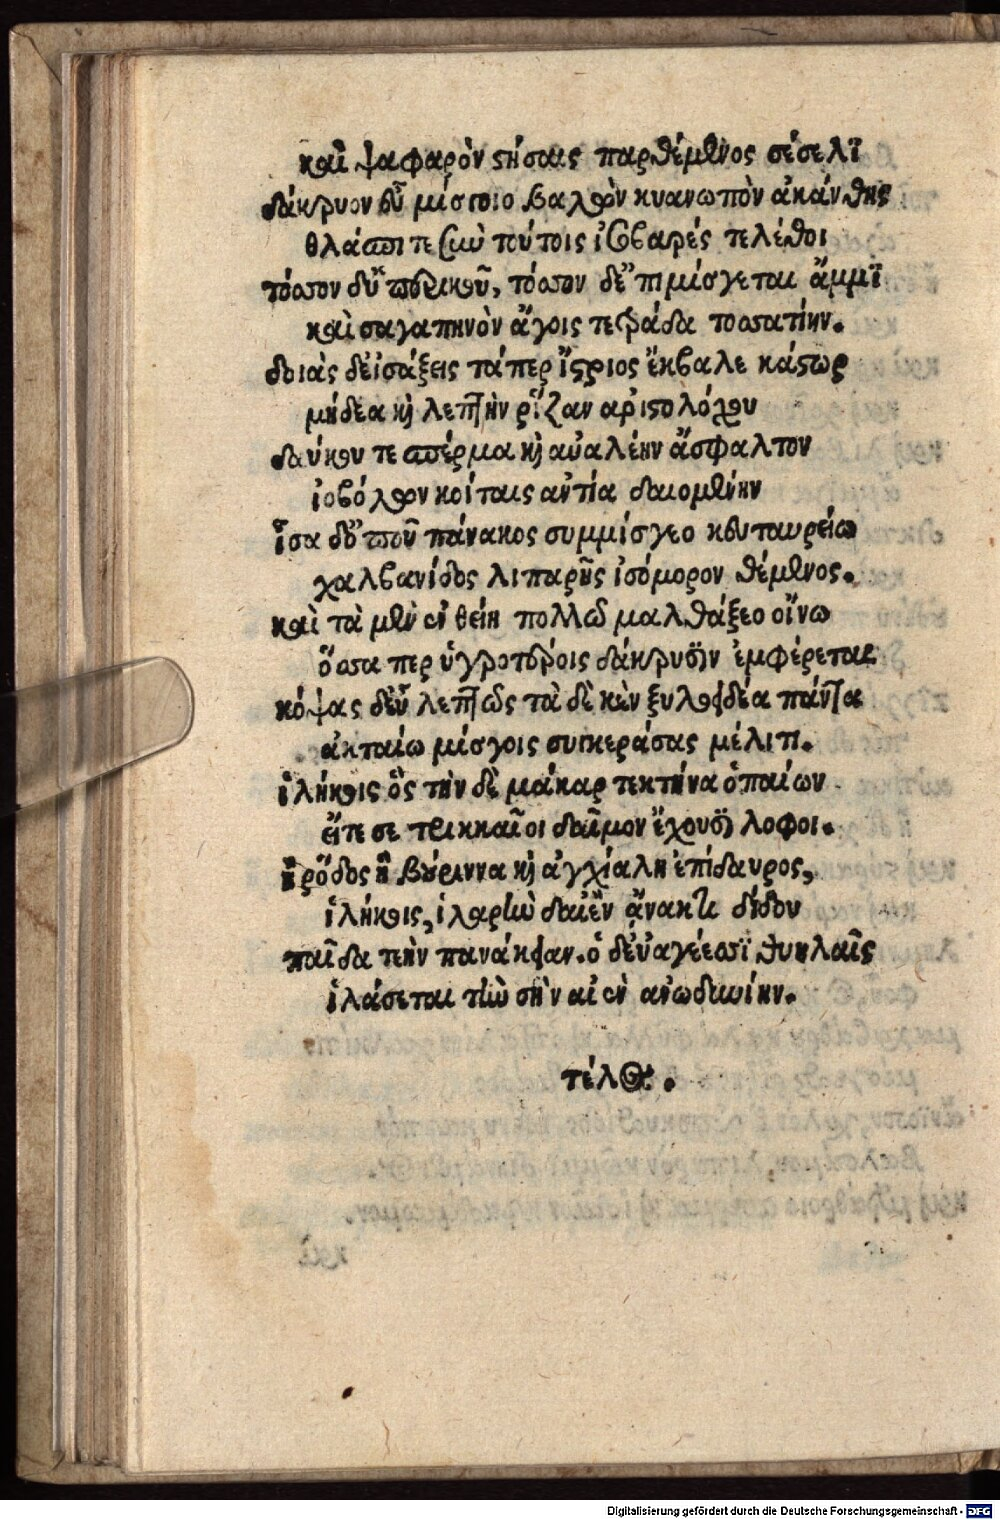 καὶ ψαφαρὸν στήσαις παρθέμενος σέσελϊ
δάκρυον εὖ μίσγοιο βαλὼν κυανωπὸν ἀκάνθης
θλάσπι τε σὺν τούτοις ἰσοβαρές τελέθοι
τόσσον δ' εὔπετρικοῦ, τόσσον δ' ἐπιμίσγεται ἄμμϊ
καὶ σαγαπηνὸν ἄγοις τετράδα τοσσατίην.
δοιὰς δ' εἰσάξεις τάπερ ἴστριος ἔκβαλε κάστωρ
μήδεα καὶ λεπτὴν ῥίζαν ἀριστολόχου
δαύκου τε σπέρμα καὶ αὐαλέην ἄσφαλτον
ἰοβόλων κοίταις ἀντία δαιομένην
ἶσα δ' ὀποῦ πάνακος συμμίσγεο κενταυρείω
χαλβανίδος λιπαρῆς ἰσόμορον θέμενος.
καὶ τὰ μὲν ἐνθείη πολλῷ μαλθάξεο οἴνω
ὅσσα περ ὑγροτέροις δάκρυσιν ἐμφέρεται
κόψας δ' εὖ λεπτῶς τὰ δὲ κὲν ξυλοειδέα πάντα
ἀκταίω μίσγοις συγκεράσας μέλιτι.
ἱλήκοις ὃς τὴν δὲ μάκαρ τεκτήναο παίων
εἴτε σε τρικκαῖοι δαῖμον ἔχουσι λοφοι.
ἢ ῥόδος ἢ βύριννα καὶ ἀγχίαλη ἐπίδαυρος,
ἱλήκοις, ἱλαρὴν δαἰὲν ἄνακτι δίδου
παῖδα τεὴν πανάκειαν. ὁ δ' εὐαγέεσσϊ θυηλαῖς
ἱλάσεται τὴν σὴν αἰὲν ἀνωδυνίην.
τέλος.